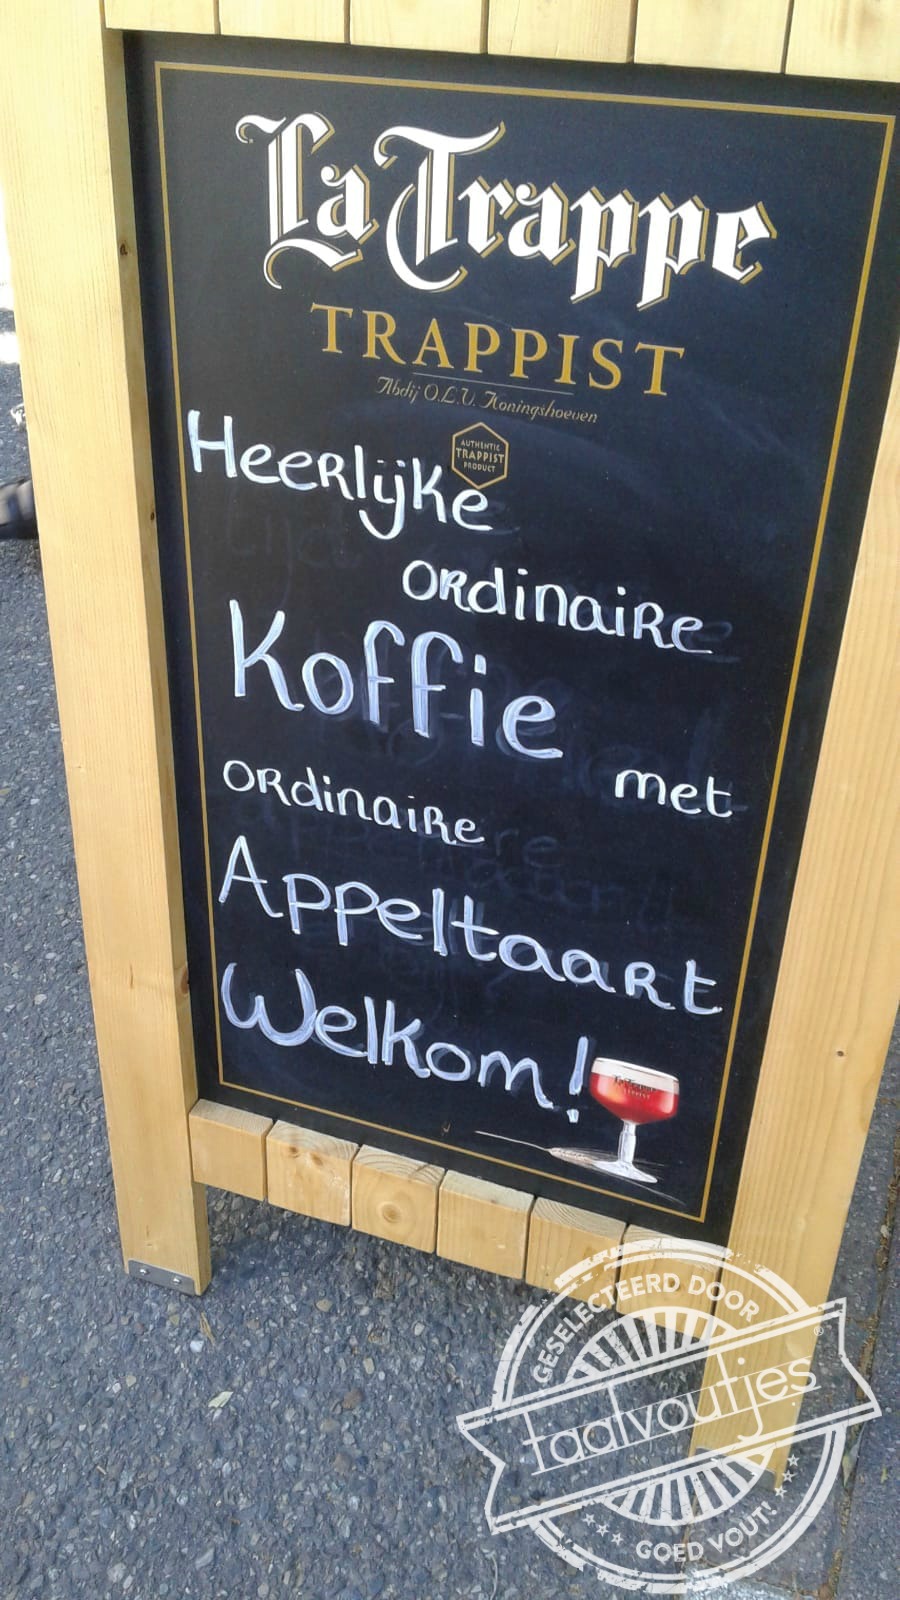 La Trappe
TRAPPIST
Abdij O.L.V. Koningshoeven
AUTHENTIC
TRAPPIST
PRODUCT
Heerlijke
ordinaire
Koffie
met
ordinaire
Appeltaart
Welkom!
La Trappe
TRAPPIST
GESELECTEERD DOOR
taalvoutjes®
GOED VOUT!